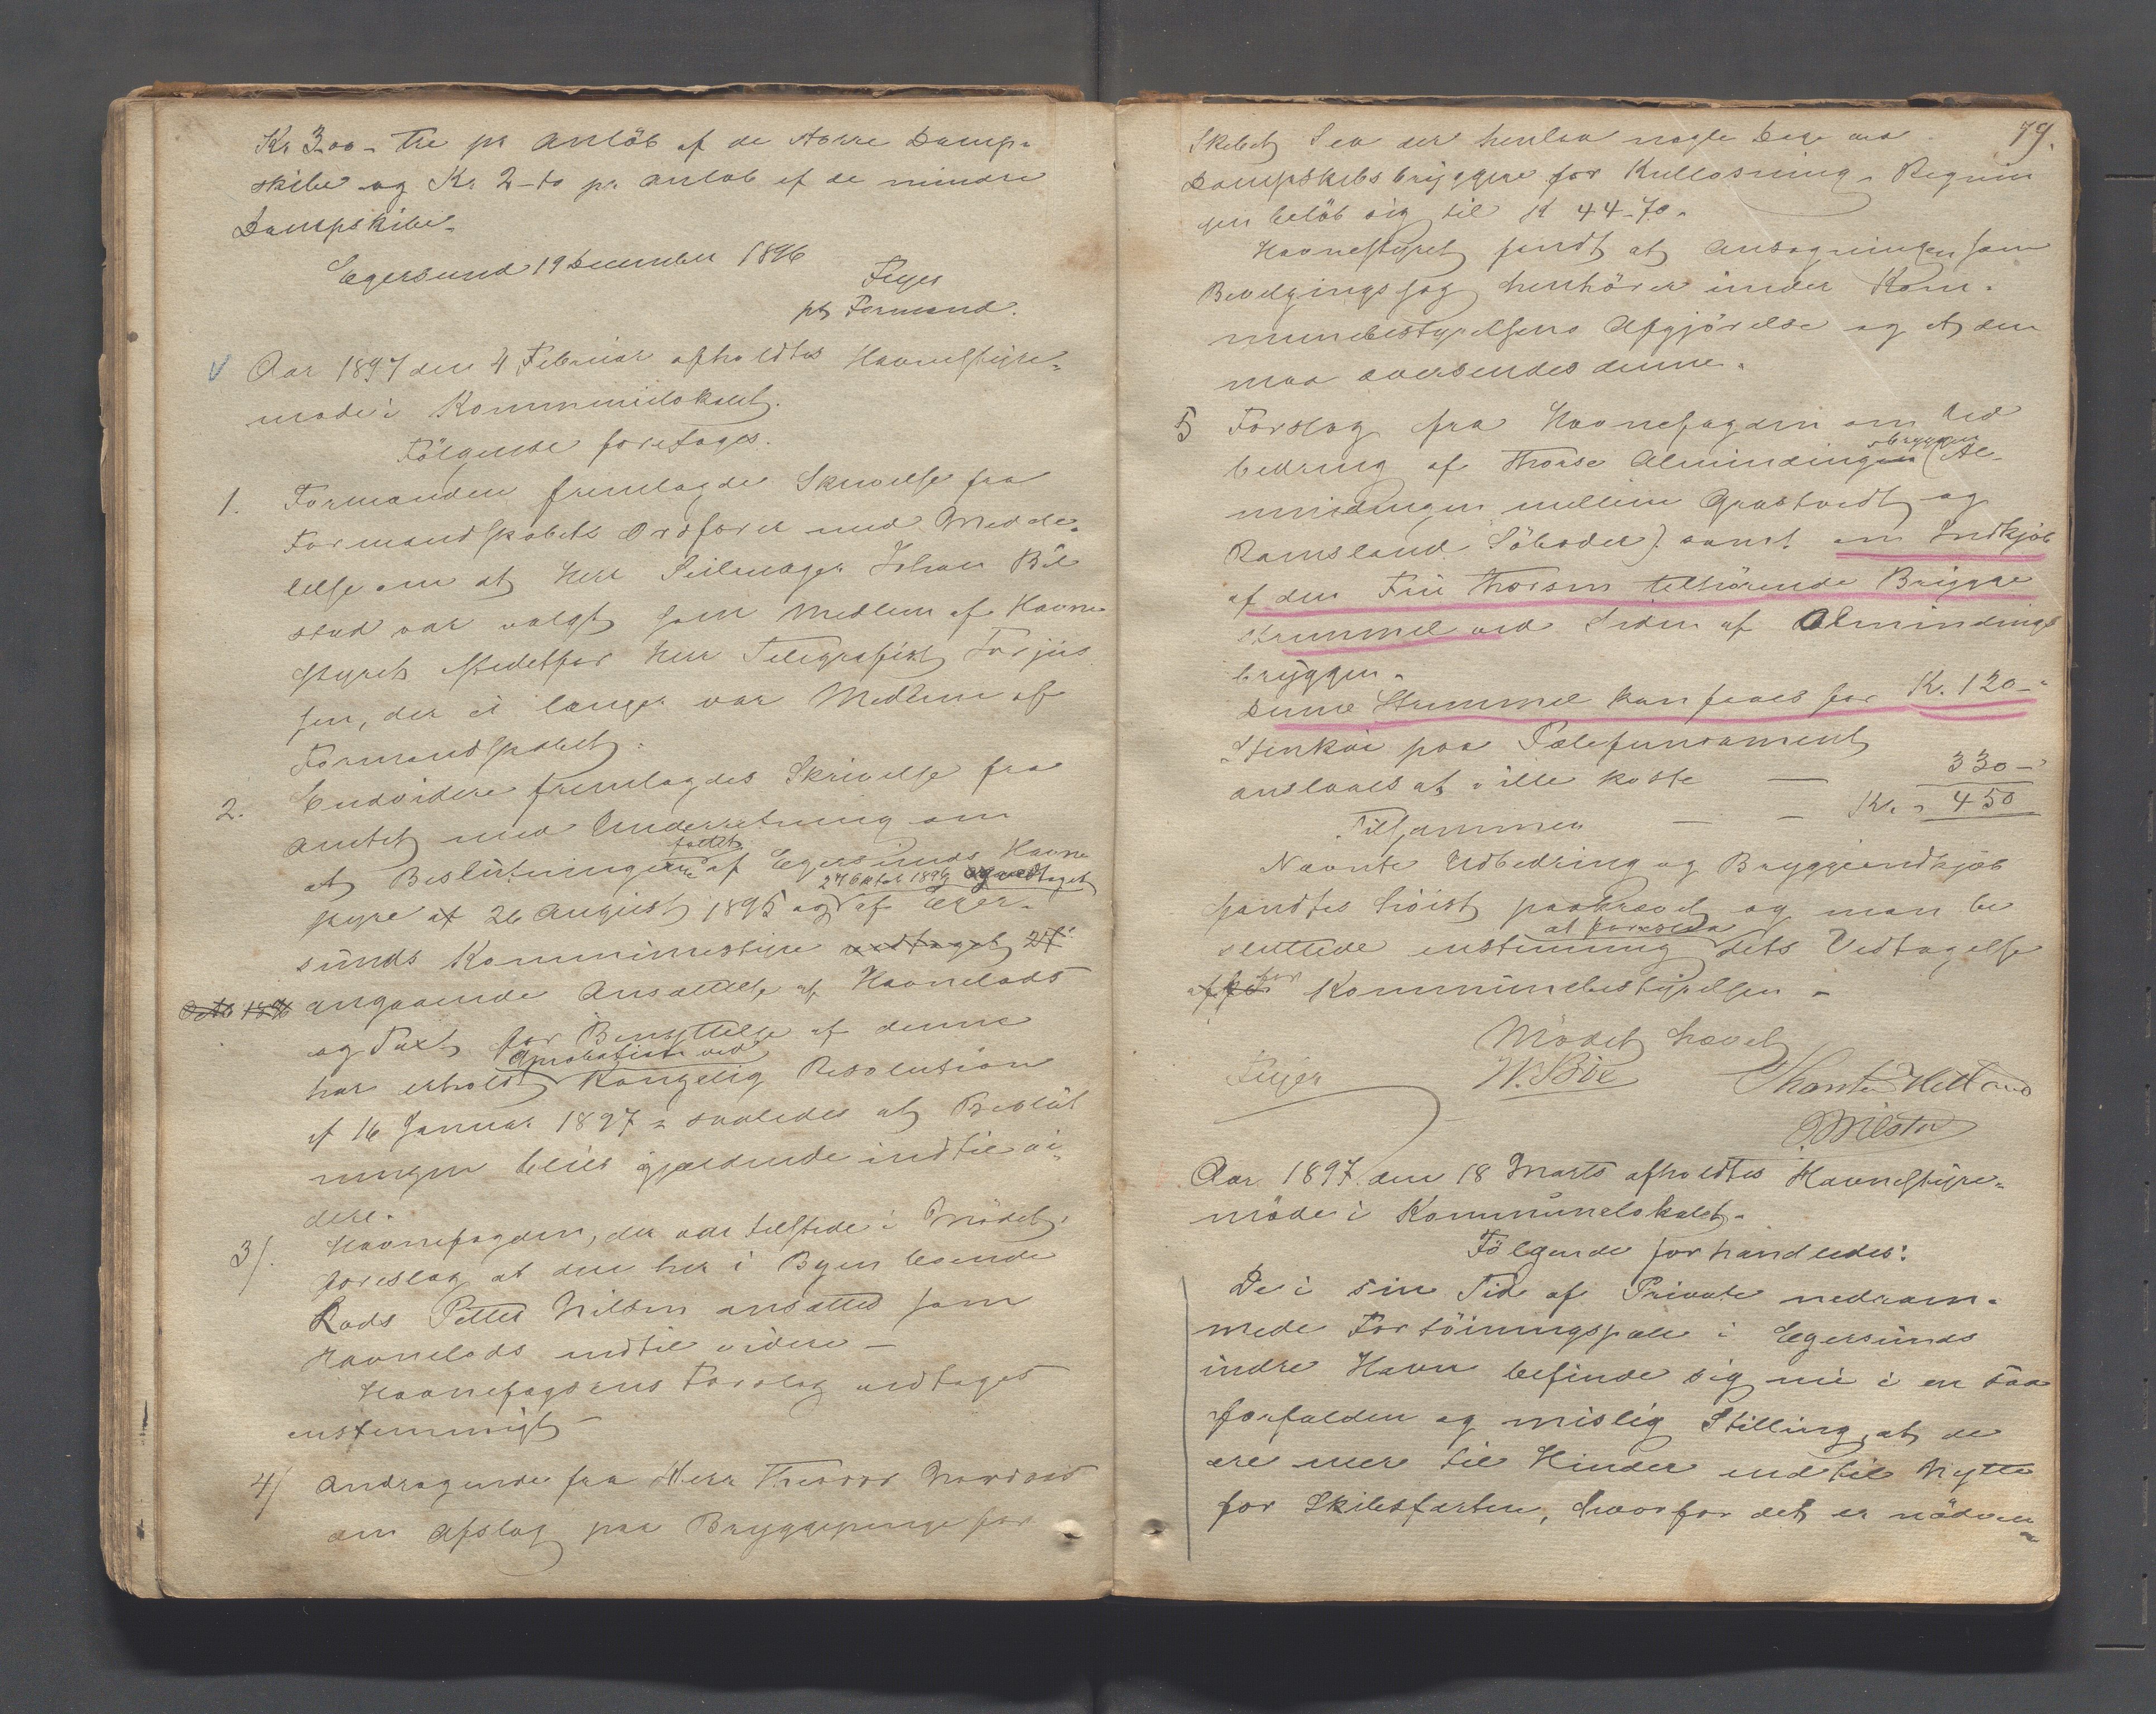 Kr 3.00 - tre pr Anlöb af de större Damp-
skibe og Kr. 2 - to pr. Anlöb af de mindre
Dampskibe.
Egersund 19 December 1896
Feyer
pt Formand.
Aar 1897 den 4 Februar afholdtes Havnestyre-
möde i Kommunelokalet.
Fölgende foretoges.
1. Formanden fremlagde Skrivelse fra
Formandskabets Ordförer med Medde-
lelse om at Herr Seilmager Johan Bil
stad var valgt som Medlem af Havne
styret istedetfor Herr Telegrafist Torjus
sen, der ei længer var Medlem af
Formandskabet.
2. Endvidere fremlagdes Skrivelse fra
Amtet med Underretning om
at Beslutningen fattet af Egersunds Havne
styre af 26 August 1895 og 27 Oktob 1896 og vedtaget af Eger-
sunds Kommunestyre vedtaget 27
Octb 1896 angaaende Ansættelse af Havnelods
og Taxt for Benyttelse af denne
har erholdt Approbation ved Kongelig Resolution
af 16 Januar 1897 - saaledes at Beslut
ningen blir gjældende indtil vi-
dere.
3/. Havnefogden, der var tilstede i Mödet,
foreslog at den her i Byen boende
Lods Petter Nilsen ansattes som
Havnelods indtil videre -
Havnefogdens Forslag vedtoges
enstemmigt -
4/ Andragende fra Herr Theodor
om Afslag paa Bryggepenge for
79.
Skibet der henlaa nogle Dage ved
Dampskibsbryggen for Kullosning. Regnin
gen belöb sig til K 44-70.
Havnestyret fandt at Ansøgningen som
Bevilgningssag henhörer under Kom-
munebestyrelsens Afgjörelse og at den
maa oversendes denne.
5 Forslag fra Havnefogden om Ud
bedring af Almindingen bryggen (Al-
mindingen mellem og
Ramsland Söboder) samt om Indkjöb
af den Frue tilhörende Brygge
strummel ved Siden af Almindings
bryggen.
Denne Strummel kan faaes for Kr. 120 -
Stenkai paa Pælefundament
anslaaes at ville koste — 330 -
Tilsammen — - Kr. 450
Nævnte Udbedring og Bryggeindkjöb
fandtes höist paakrævet og man be
sluttede enstemmig at foreslaa dets Vedtagelse
af for Kommunebestyrelsen -
Mödet hævet
Feyer W. Böe Thorstein Helland
Aar 1897 den 18 Marts afholdtes Havnestyre-
möde i Kommunelokalet.
Fölgende forhandledes:
De i sin Tid af Private nedram-
mede Fortöiningspæle i Egersunds
indre Havn befinde sig nu i en saa
forfalden og mislig Stilling, at de
ere mer til Hinder end til Nytte
for Skibsfarten, hvorfor det er nödven